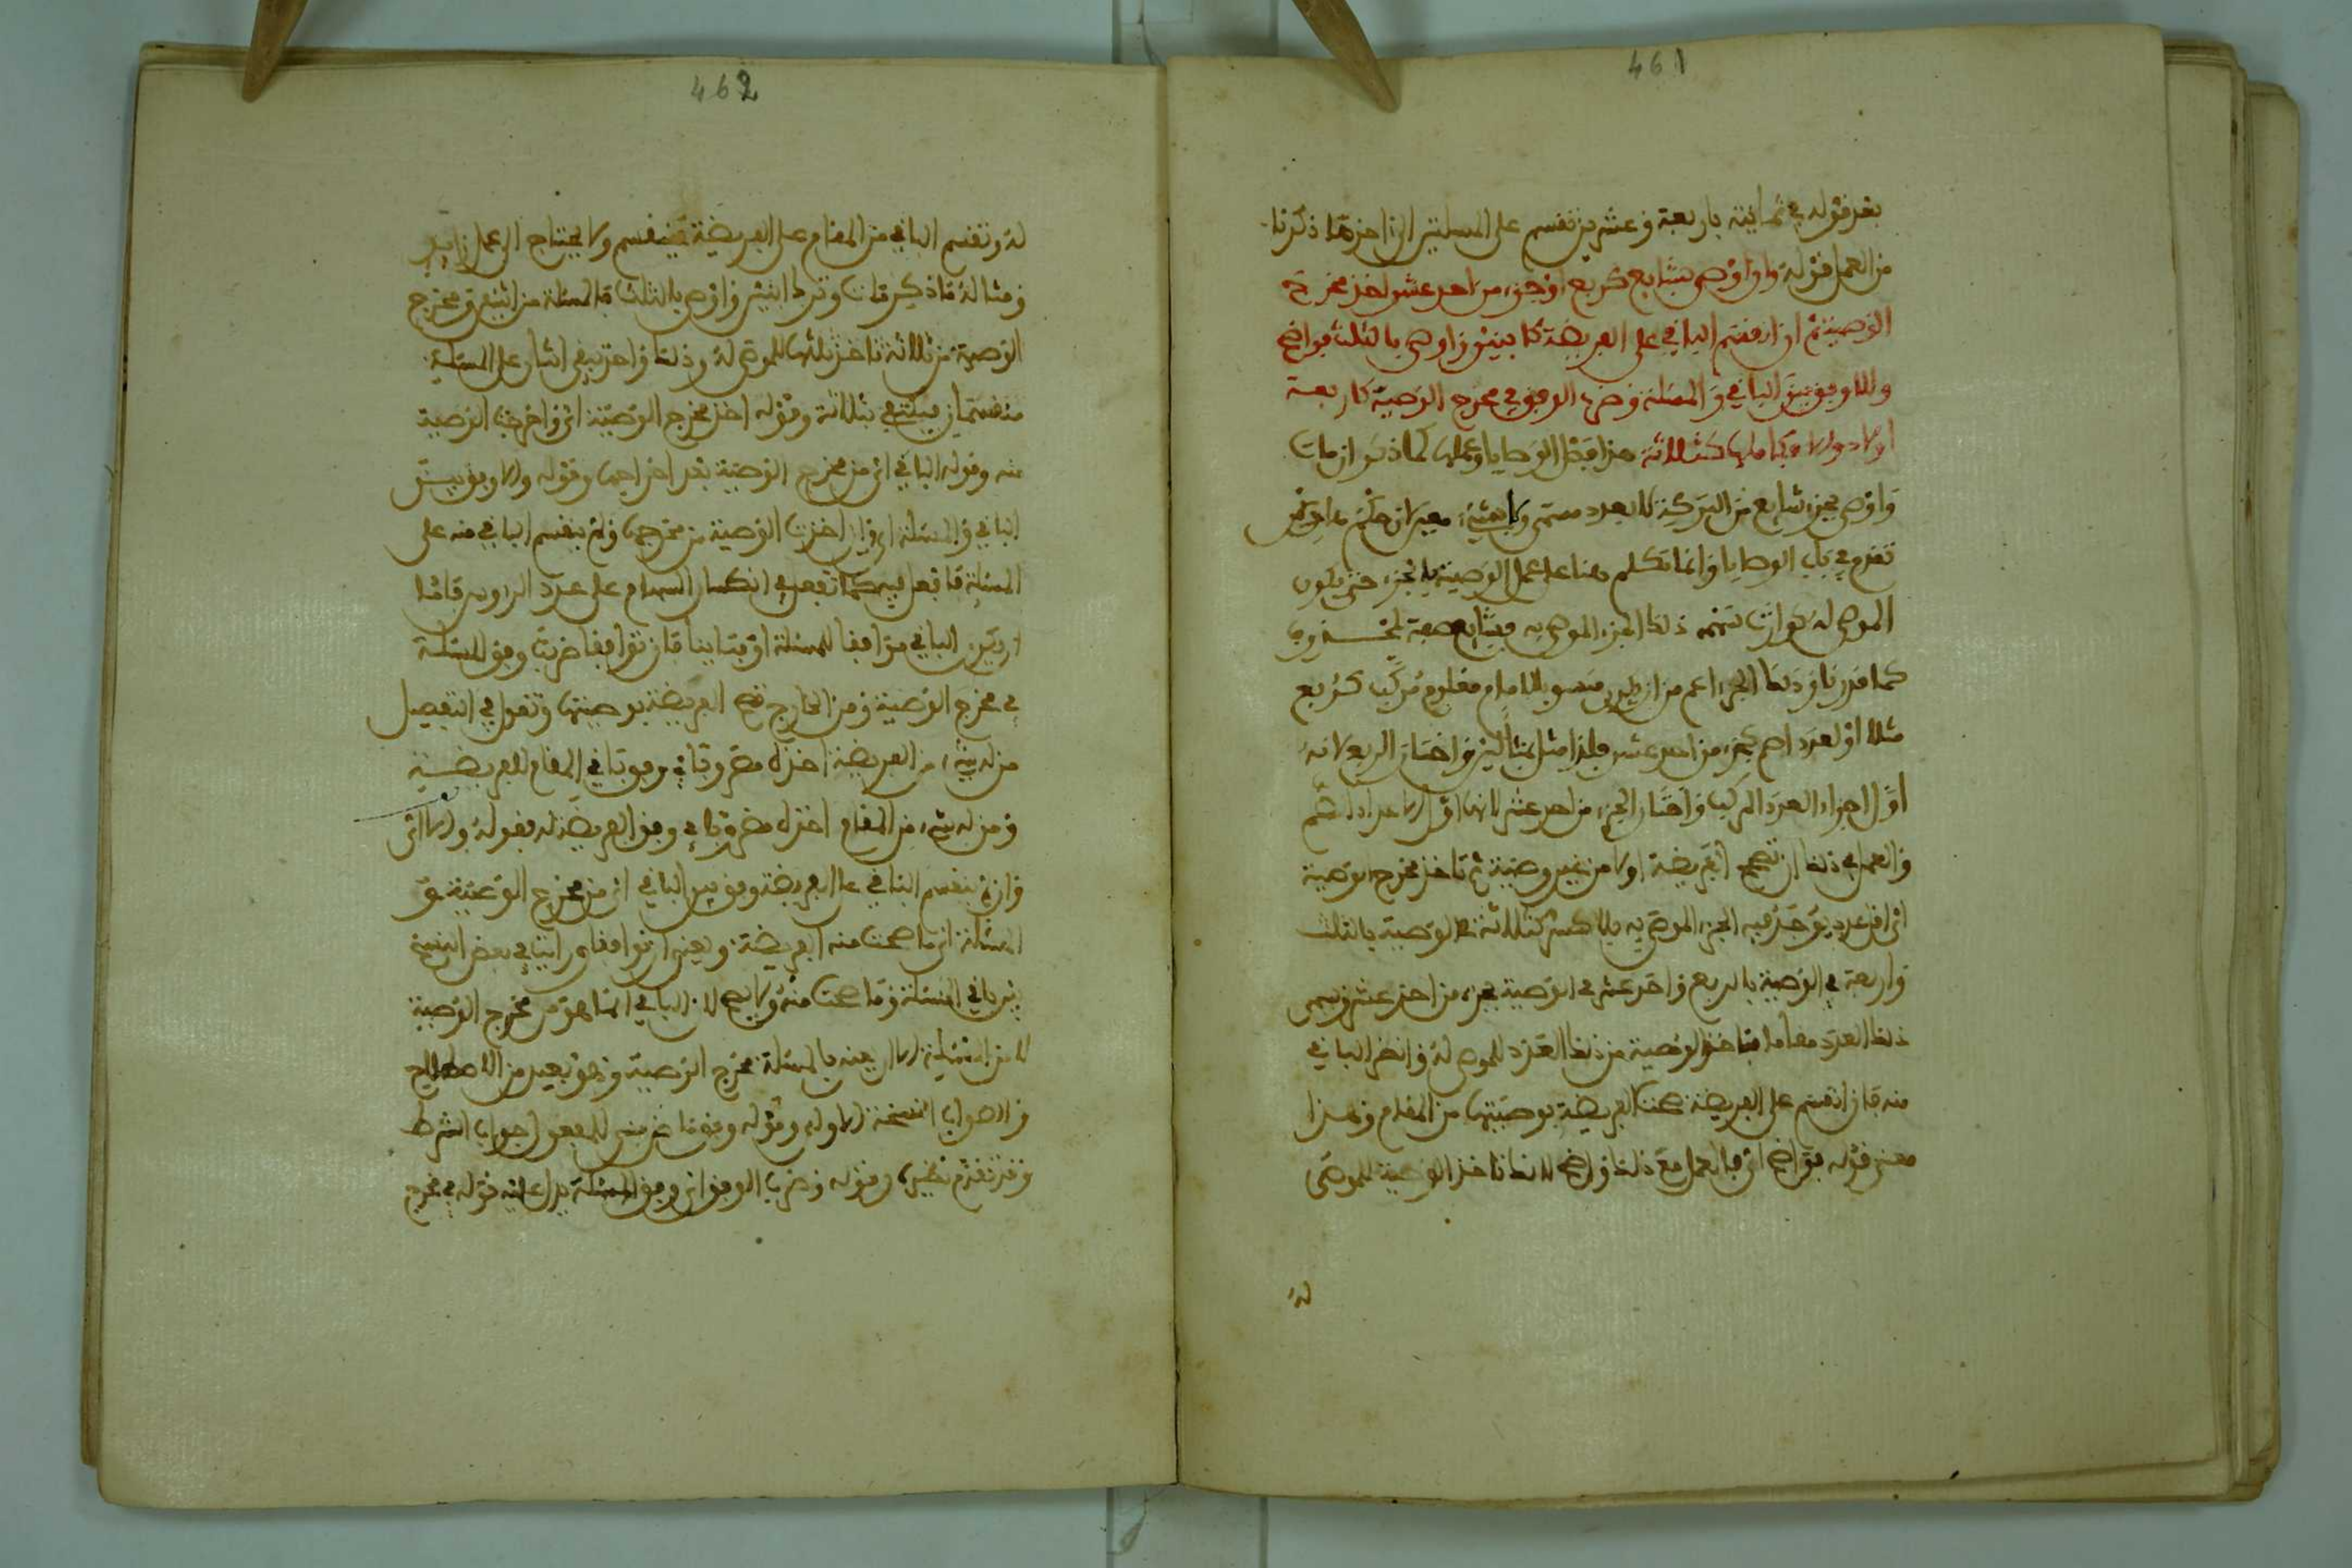 461
بعد قوله في ثمانية باربعة وعشرين تنقسم على المسلتين الى اخر ما ذكرنا
من العمل قوله وان اوصى بشايع كربع او جزء من احد عشر اخذ مخرج
الوصية ثم ان انقسم الباقي على الفريضة كابنين واوصى بالثلث فواضح
والا وفق بين الباقي والمسئلة وضرب الوفق في مخرج الوصية كاربعة
اولاد والا فكاملها كثلاثة هذا فصل الوصايا وعملها كما ذكر ان مات
واوصى بجزء شايع من التركة لا بعدد مسمى ولا بشيء معين حكم ما
تقدم في باب الوصايا وانما تكلم هنا على عمل الوصية بالجزء حتى يكون
الموصى له كوارث سهمه ذلك الجزء الموصى به فبشايع صفة لمحذوف
كما قررنا وذلك الجزء اعم من ان يكون منسوبا لامام مفهوم مركب كربع
مثلا او لعدد اصم كجزء من احد عشر فلذا مثل بمثالين واختار الربع لانه
اول اجزاء العدد المركب واختار الجزء من احد عشر لانها اول الاعداد الصم
والعمل في ذلك ان تصحح الفريضة اولا من غير وصية ثم تاخذ مخرج الوصية
اي اقل عدد يوجد فيه الجزء الموصى به بلا كسر كثلاثة في الوصية بالثلث
واربعة في الوصية بالربع واحد عشر في الوصية بجزء من احد عشر ويسمى
ذلك العدد مقاما فتاخذ الوصية من ذلك العدد للموصى له وانظر الباقي
منه فان انقسم على الفريضة صحت الفريضة بوصيتها من المقام وهذا
معنى قوله فواضح اي فالعمل مع ذلك واضح لانك تاخذ الوصية للموصى
له
462
له وتقسم الباقي من المقام على الفريضة فينقسم ولا يحتاج الى عمل زايد
ومثاله ما ذكر مات وترك ابنين واوصى بالثلث فالمسئلة من اثنين ومخرج
الوصية من ثلاثة تاخذ ثلثها للموصى له وذلك واحد يبقى اثنان على المسئلة
منقسمان فيكتفى بثلاثة وقوله اخذ مخرج الوصية اي واخرجت الوصية
منه وقوله الباقي اي من مخرج الوصية بعد اخراجها وقوله والا وفق بين
الباقي والمسئلة اي وان اخذت الوصية من مخرجها ولم ينقسم الباقي منه على
المسئلة فافعل فيه كما تفعل في انكسار السهام على عدد الرءوس فاما
ان يكون الباقي موافقا للمسئلة او متباينا فان توافقا ضربت وفق المسئلة
في مخرج الوصية ومن الخارج تصح الفريضة بوصيتها وتقول في التفصيل
من له شيء من الفريضة اخذه مضروبا في وفق باقي المقام للفريضة
ومن له شيء من المقام اخذه مضروبا في وفق الفريضة له فقوله والا اي
وان لم ينقسم الباقي على الفريضة وفق بين الباقي اي من مخرج الوصية وبين
المسئلة اي ما صحت منه الفريضة ويعني ان توافقا ورايت في بعض النسخ
بين باقي المسئلة وما صحت منه ولا يصح لان الباقي انما هو من مخرج الوصية
لا من المسئلة الا ان يعني بالمسئلة مخرج الوصية وهو بعيد من الاصطلاح
والصواب النسخة الاولى وقوله وفق ما غير مبني للمفعول جواب الشرط
وقد تقدم نظيره وقوله وضرب الوفق اي وفق المسئلة يدل عليه قوله في مخرج